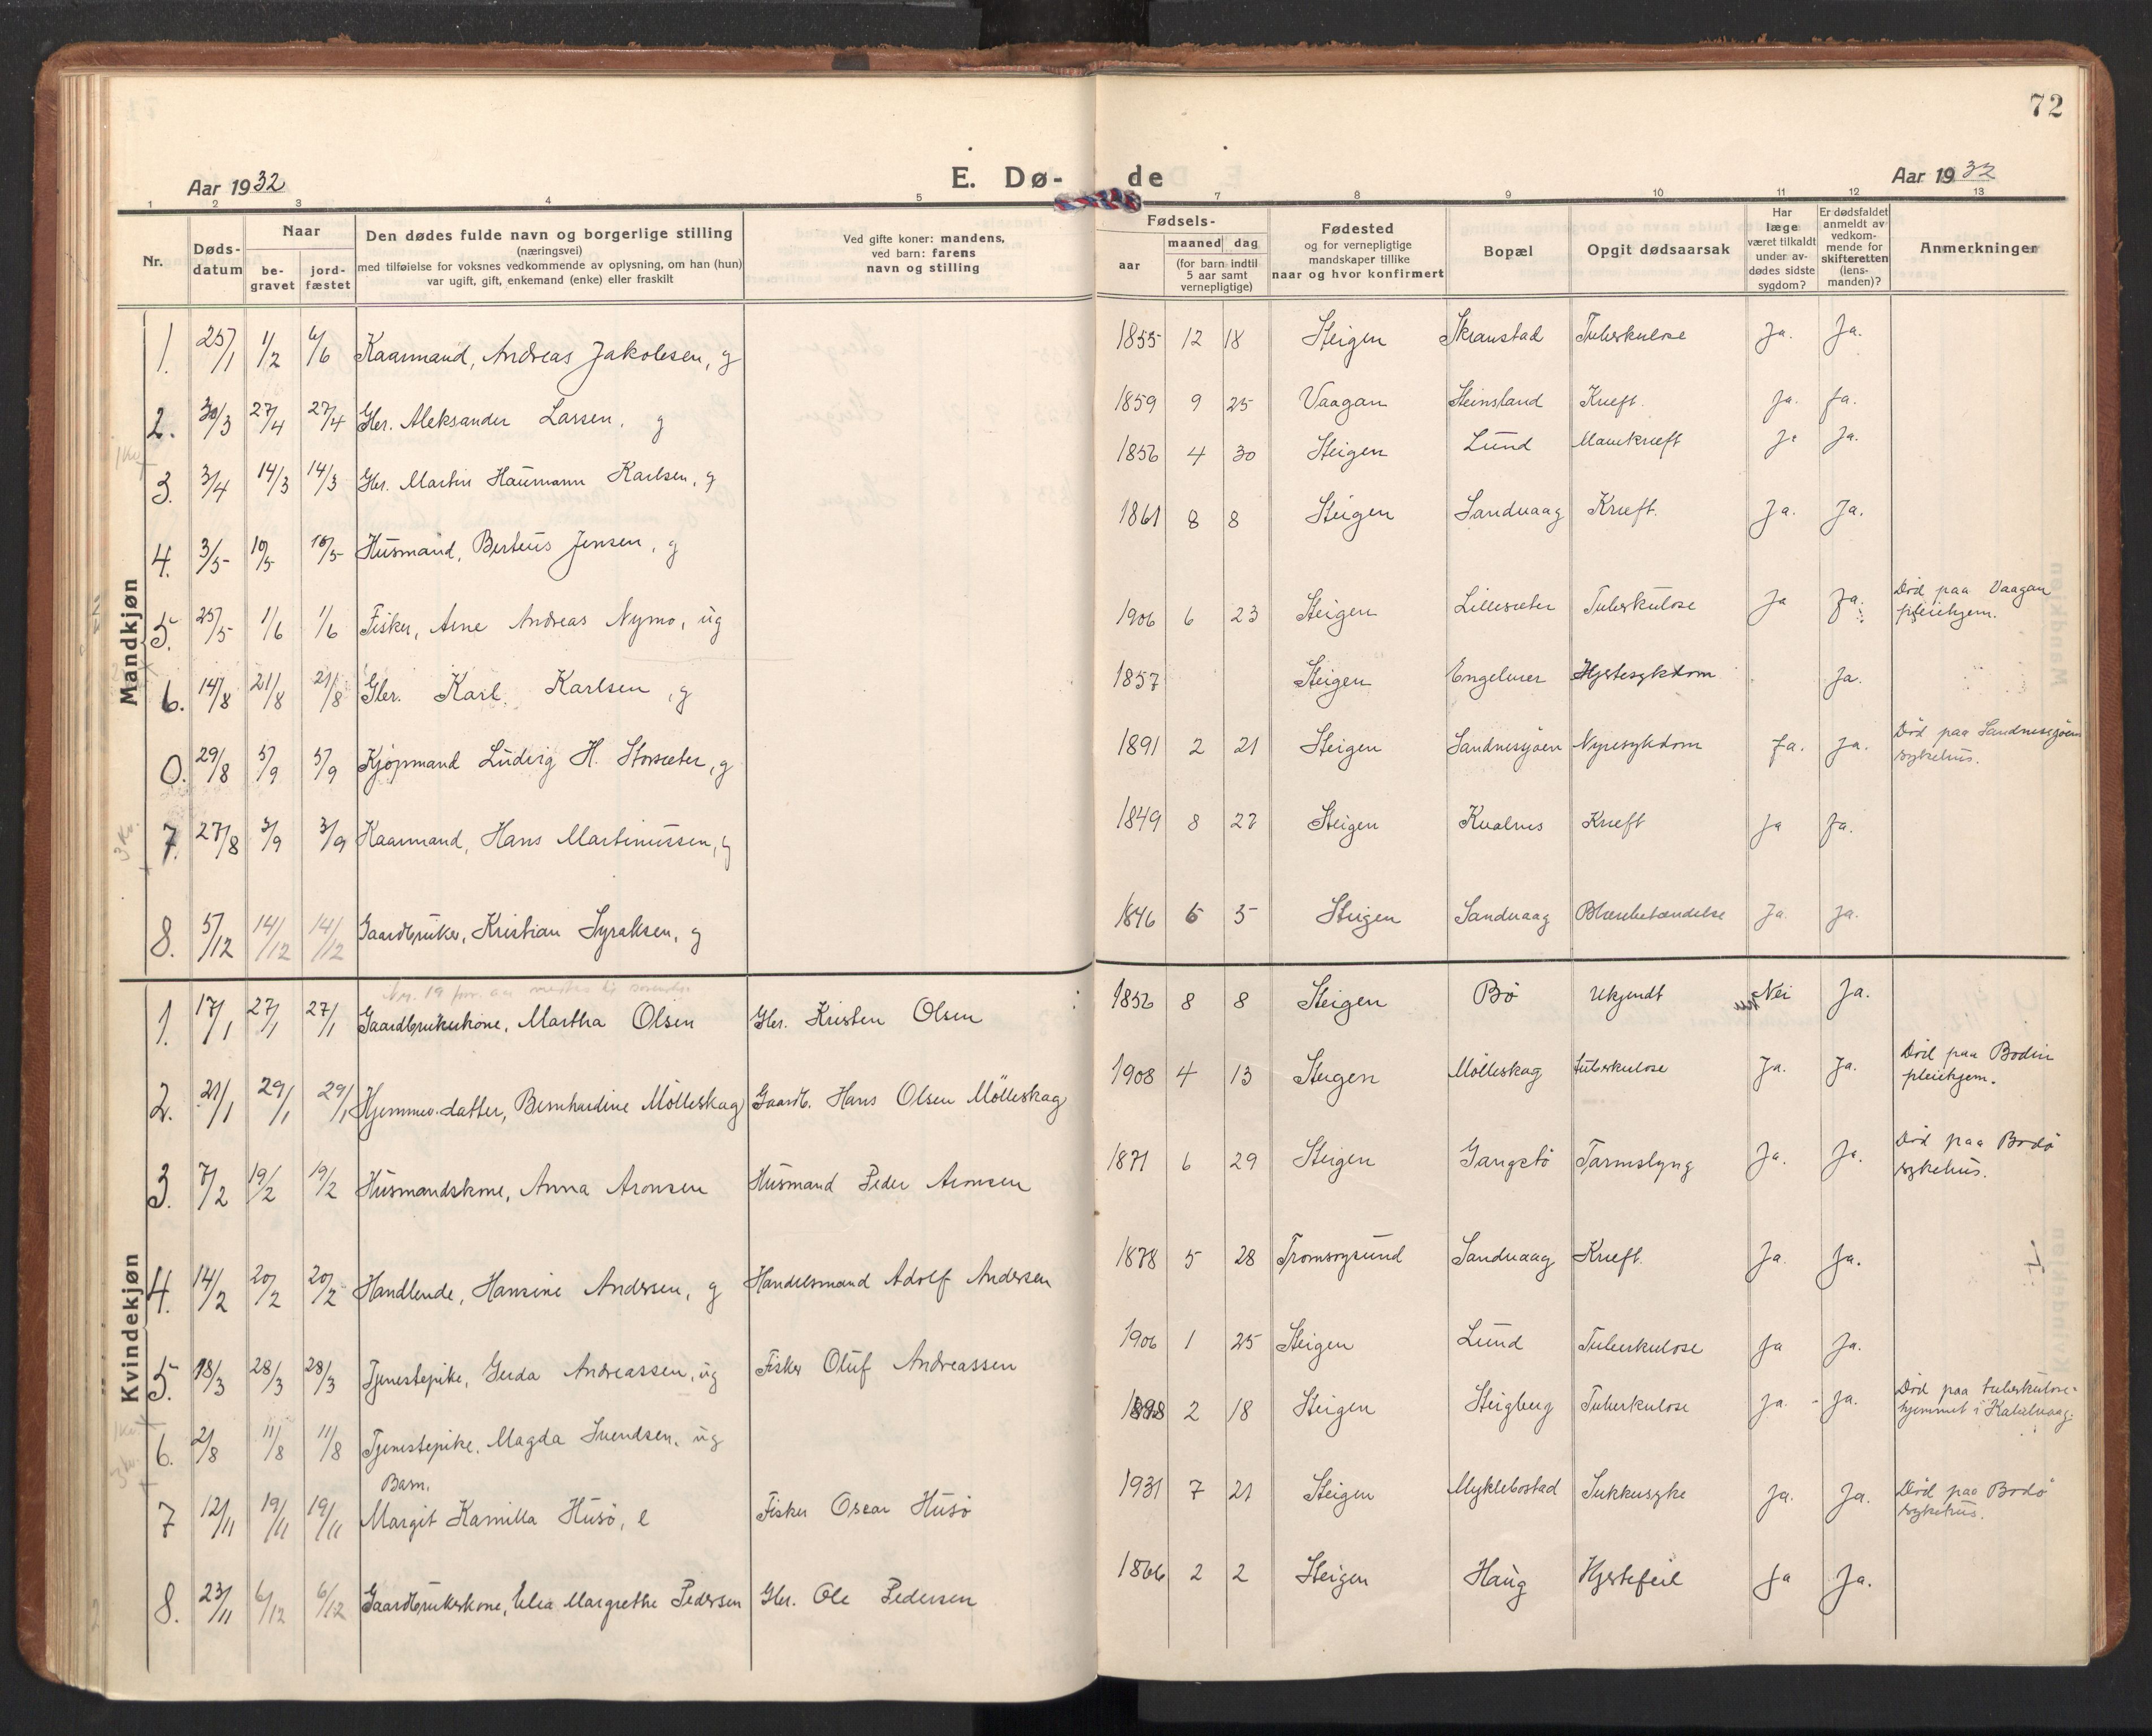 72
Aar 1932
E. Dø-
de
Aar 1932
1 2 3 4 5 7 8 9 10 11 12 13
Nr.
Døds-
datum
Naar
be-
gravet
jord-
fæstet
Den dødes fulde navn og borgerlige stilling
(næringsvei)
med tilføielse for voksnes vedkommende av oplysning, om han (hun)
var ugift, gift, enkemand (enke) eller fraskilt
Ved gifte koner: mandens,
ved barn: farens
navn og stilling
Fødsels-
aar
maaned dag
(for barn indtil
5 aar samt
vernepligtige)
Fødested
og for vernepligtige
mandskaper tillike
naar og hvor konfirmert
Bopæl
Opgit dødsaarsak
Har
læge
været tilkaldt
under av-
dødes sidste
sygdom?
Er dødsfaldet
anmeldt av
vedkom-
mende for
skifteretten
(lens-
manden)?
Anmerkninger
Mandkjøn
1. 25/1 1/2 6/6 Kaarmand, Andreas Jakobsen, g 1855 12 18 Steigen Skranstad Tuberkulose Ja. Ja.
2. 30/3 27/4 27/4 Gbr. Aleksander Larsen, g 1859 9 25 Vaagan Steinsland Kræft. Ja. Ja.
3. 3/4 14/3 14/3 Gbr. Martin Haumann Karlsen, g 1856 4 30 Steigen Lund Mavekræft Ja Ja.
4. 3/5 10/5 10/5 Husmand, Berteus Jensen, g 1861 8 8 Steigen Sandvaag Kræft. Ja. Ja.
5. 25/5 1/6 1/6 Fisker, Arne Andreas Nymo, ug 1906 6 23 Steigen Lillesæter Tuberkulose Ja Ja. Död paa Vaagan
pleiehjem.
6. 14/8 21/8 21/8 Gbr. Karl Karlsen, g 1857 Steigen Engelvær Hjertesykdom Ja.
0. 29/8 5/9 5/9 Kjøpmand Ludvig H. Storsæter, g 1891 2 21 Steigen Sandnessjöen Nyresykdom Ja. Ja. Död paa Sandnessjöen
sykehus.
7. 27/8 3/9 3/9 Kaarmand, Hans Martinussen, g 1849 8 27 Steigen Kvalnes Kræft Ja Ja.
8. 5/12 14/12 14/12 Gaardbruker, Kristian Syraksen, g 1846 6 5 Steigen Sandvaag Blærebetændelse Ja. Ja.
Kvindekjøn
1. 17/1 27/1 27/1 Gaardbrukerkone, Martha Olsen Gbr. Kristen Olsen 1856 8 8 Steigen Bö Ukjendt Nei Ja.
2. 21/1 29/1 29/1 Hjemmev. datter, Bernhardine Mölleskag Gaardb. Hans Olsen Mölleskag 1908 4 13 Steigen Mölleskag tuberkulose Ja. Ja. Död paa Bodin
pleiehjem.
3. 7/2 19/2 19/2 Husmandskone, Anna Aronsen Husmand Peder Aronsen 1871 6 29 Steigen Gangstö Tarmslyng Ja. Ja. Död paa Bodö
sykehus.
4. 14/2 20/2 20/2 Handlende, Hansine Andersen, g Handelsmand Adolf Andersen 1878 5 28 Tromsøysund Sandvaag Kræft. Ja. Ja.
5. 18/3 28/3 28/3 Tjenestepike, Gerda Andreassen, ug Fisker Oluf Andreassen 1906 1 25 Steigen Lund Tuberkulose Ja Ja.
6. 2/8 11/8 11/8 Tjenestepike, Magda Svendsen, ug 1898 2 18 Steigen Steigberg Tuberkulose Ja. Ja. Död paa tuberkulose-
hjemmet i Kabelvaag.
Barn.
7 12/11 19/11 19/11 Margit Kamilla Husö, e Fisker Oscar Husö 1931 7 21 Steigen Myklebostad Sukkersyke Ja. Ja. Död paa Bodö
sykehus.
8. 23/11 6/12 6/12 Gaardbrukerkone, Elea Margrethe Pedersen Gbr. Ole Pedersen 1866 2 2 Steigen Haug Hjertefeil Ja Ja.